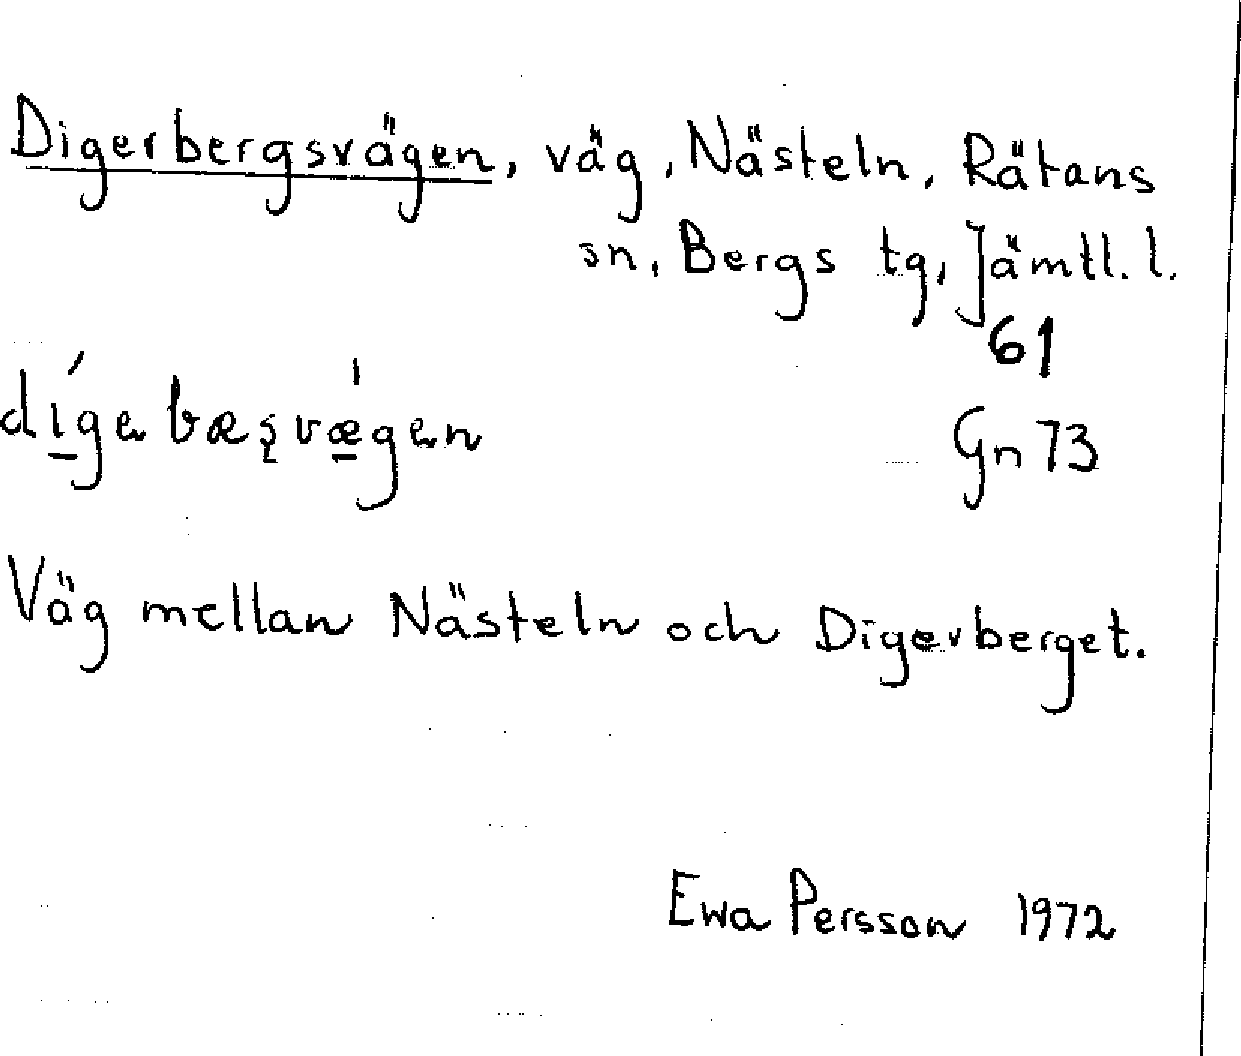 Digerbergsvägen, väg, Nästeln, Rätans
sn, Bergs tg, Jämtl. l.
61
Gn 73
Väg mellan Nästeln och Digerberget.
Ewa Persson 1972